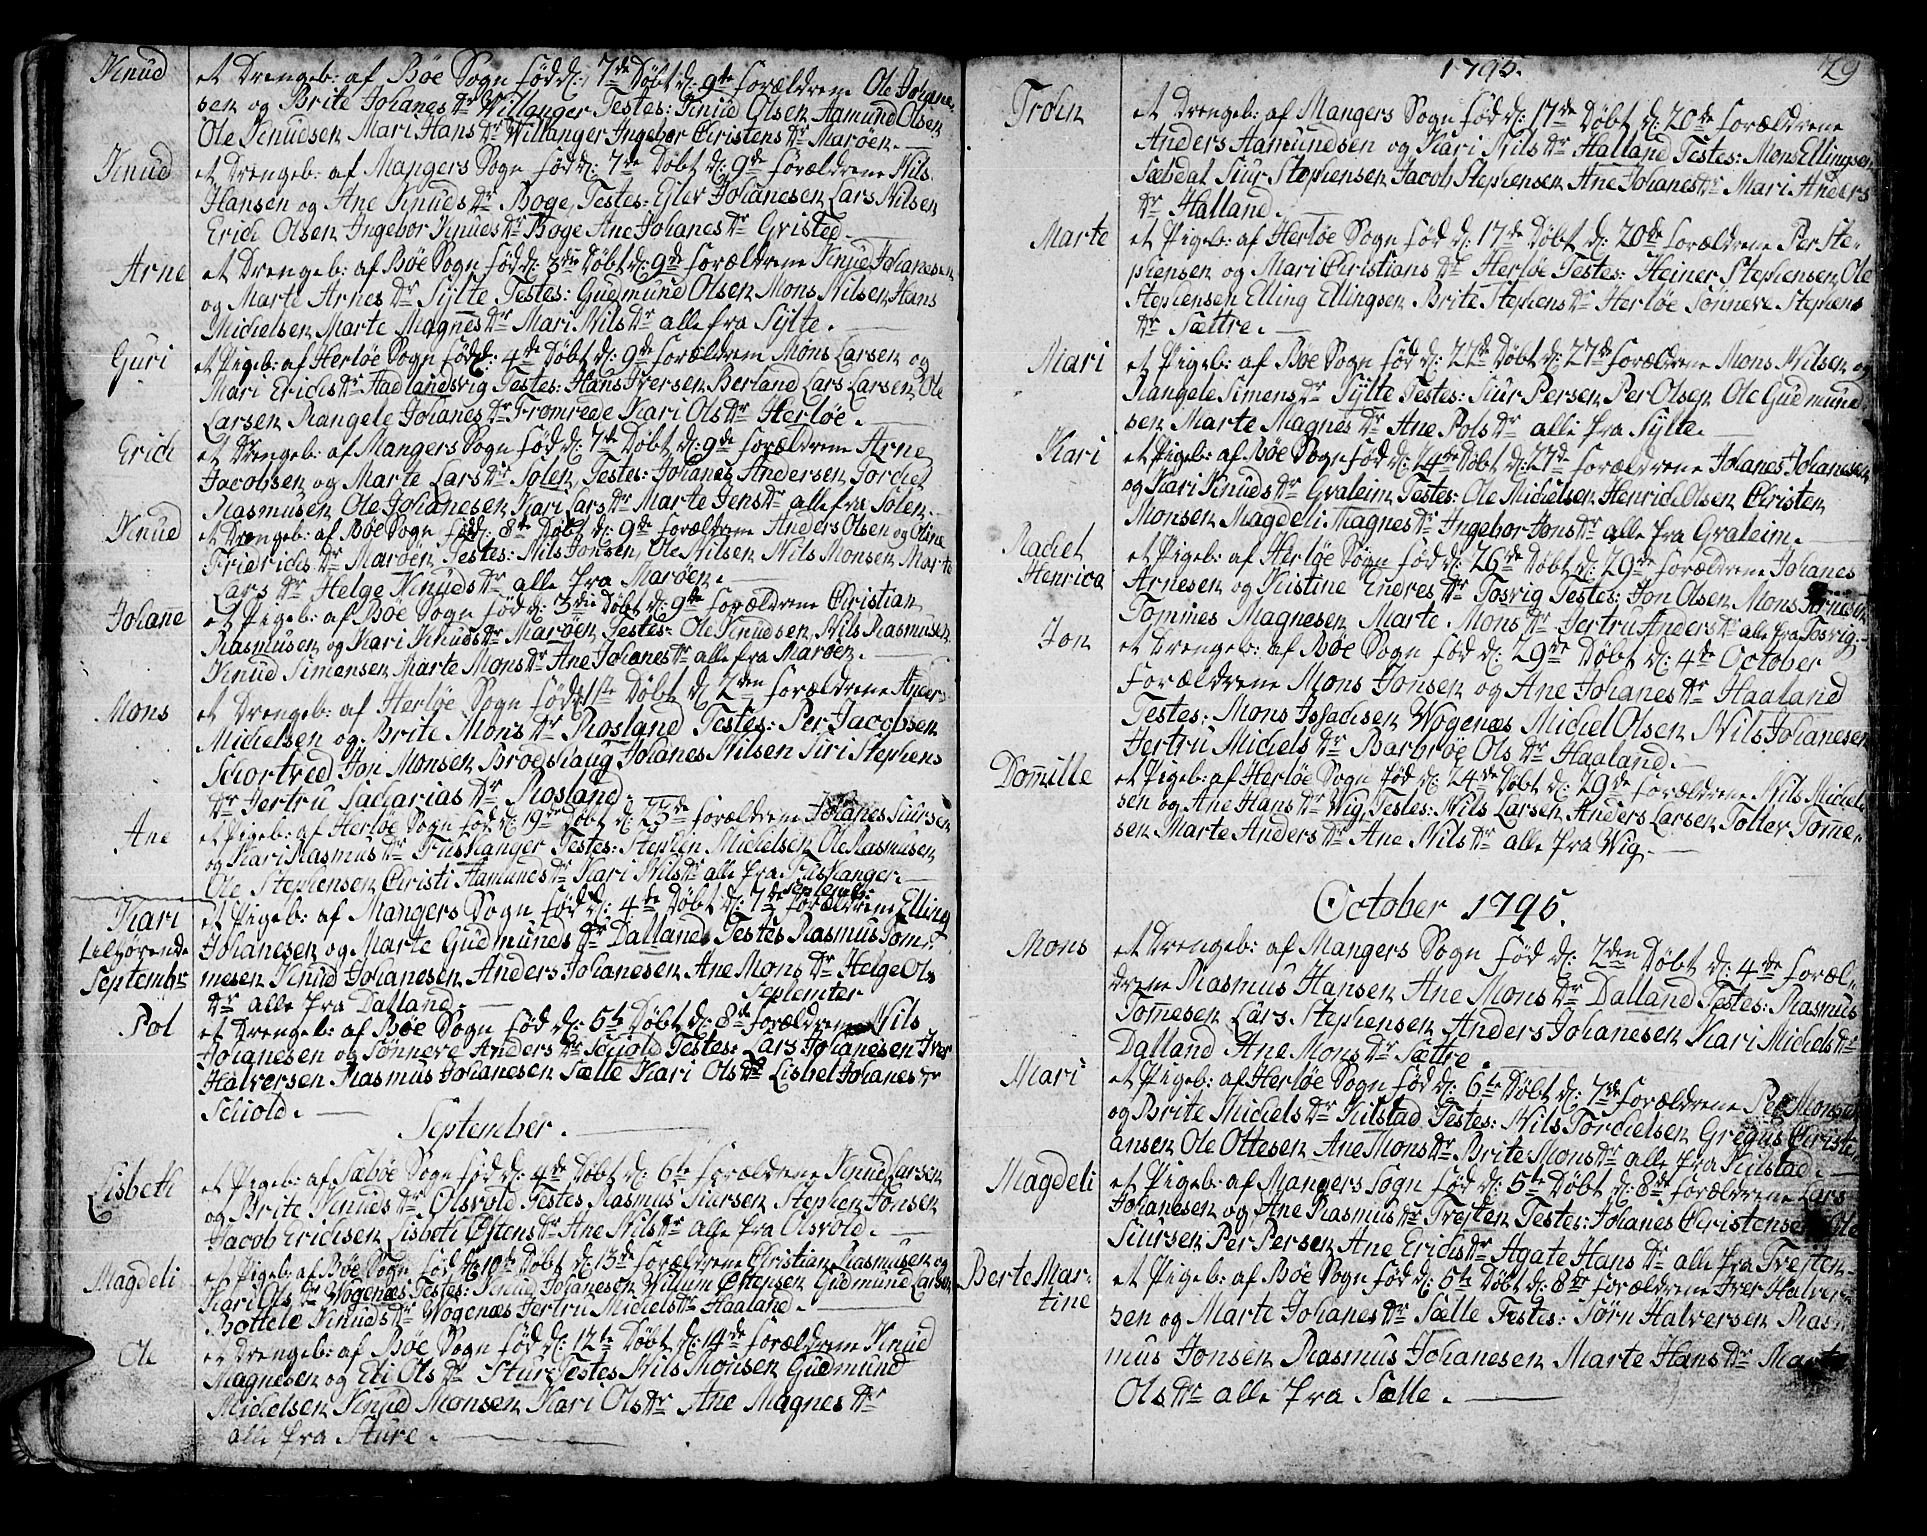 Knud
et Drengeb: af Böe Sogn föd d: 7de Döbt d: 9de forældrene Ole Johane-
sen og Brite Johanes Dr Willanger Testes: Knud Olsen Aamund Olsen
Ole Knudsen Mari Hans Dr Willanger Ingebor Christens Dr Maröen.
Knud
et Drengeb: af Mangers Sogn föd d: 7de Döbt d: 9de forældrene Nils
Hansen og Ane Knuds Dr Boge, Testes: Ejlev Johanesen Lars Nilsen
Erich Olsen Ingebor Knuds Dr Boge Ane Johanes Dr Gristed.
Arne
et Drengeb: af Böe Sogn föd d: 3die Döbt d: 9de forældrene Knud Johanesen
og Marte Arnes Dr Sylte Testes: Gudmund Olsen Mons Nilsen Hans
Michelsen Marte Magnes Dr Mari Nils Dr alle fra Sylte.
Guri
et Pigeb: af Herlöe Sogn föd d: 4de Döbt d: 9de forældrene Mons Larsen og
Mari Erichs Dr Aadlandsvig Testes: Hans Iversen Berland Lars Larsen Ole
Larsen Rangele Johanes Dr Fromrede Kari Ols Dr Herlöe.
Erich
et Dr engeb: af Mangers Sogn föd d: 7de Döbt d: 9de forældrene Arne
Jacobsen og Marte Lars Dr Solen Testes: Johanes Andersen Torchel
Rasmusen Ole Johanesen Kari Lars Dr Marte Jens Dr alle fra Solen.
Knud
et Drengeb: af Böe Sogn föd d: 8de Döbt d: 9de forældrene Anders Olsen og Oline
Fridrichs Dr Maröen Testes: Nils Jonsen Ole Nilsen Nils Monsen Marte
Lars Dr Helge Knuds Dr alle fra Maröen.
Johane
et Pigeb: af Böe Sogn föd d: 3die Döbt d: 9de forældrene Christian
Rasmusen og Kari Knuds Dr Maröen Testes: Ole Knudsen Nils Rasmusen
Knud Simensen Marte Mons Dr Ane Johanes Dr alle fra Maröen.
Mons
et Drengeb: af Herlöe Sogn föd d: 1ste Döbt d: 2den forældrene Anders
Michelsen og Brite Mons Dr Rosland Testes: Per Jacobsen
Schortved Jon Monsen Brodshaug Johanes Nilsen Siri Stephens
Dr Jertru Sacharias Dr Rosland.
Ane
et Pigeb: af Herlöe Sogn föd d: 19de Döbt d: 23de forældrene Johanes Siursen
og Kari Rasmus Dr Fuskanger Testes: Stephen Michelsen Ole Rasmusen
Ole Stephensen Christi Aamunds Dr Kari Nils Dr alle fra Fuskanger.
Kari
henhörende
Septembr
September
et Pigeb: af Mangers Sogn föd d: 4de Döbt d: 7de forældrene Elling
Johanesen og Marte Gudmunds Dr Dalland Testes Rasmus Tom-
mesen Knud Johanesen Anders Johanesen Ane Mons Dr Helge Ols
Dr alle fra Dalland.
September
Pol
et Drengeb: af Böe Sogn föd d: 5te Döbt d: 8de forældrene Nils
Johanesen og Sönneve Anders Dr Schold Testes: Lars Johanesen Iver
Halversen Rasmus Johanesen Sælle Kari Ols Dr Lisbet Johanes Dr
Schold.
September.
Lisbeth
et Pigeb: af Sæböe Sogn föd d: 4de Döbt d: 6te forældrene Knud Larsen
og Brite Knuds Dr Olsvold Testes Rasmus Siursen Stephen Jonsen
Jacob Erichsen Lisbeth Östens Dr Ane Nils Dr alle fra Olsvold.
Magdeli
et Pigeb: af Böe Sogn föd d: 10de Döbt d: 13de forældrene Christian Rasmusen og
Kari Ols Dr Wogenæs Testes: Knud Johanesen Willum Östensen Gudmund Larsen
Bottele Knuds Dr Wogenæs Jertru Michels Dr Haaland.
Ole
et Drengeb: af Böe Sogn föd d: 12te Döbt d: 14de forældrene Knud
Magnesen og Eli Ols Dr Sture Testes Nils Monsen Gudmund
Michelsen Knud Monsen Kari Ols Dr Ane Magnes Dr
alle fra Sture.
1795.
29
Troen
et Drengeb: af Mangers Sogn föd d: 17de Döbt d: 20de forældrene
Anders Aamundsen og Kari Nils Dr Halland Testes: Mons Ellingsen
Sæbdal Siur Stephensen Jacob Stephensen Ane Johanes Dr Mari Anders
Dr Halland.
Marte
et Pigeb: af Herlöe Sogn föd d: 17de Döbt d: 20de forældrene Per Ste-
phensen og Mari Christians Dr Herlöe Testes: Heiner Stephensen Ole
Stephensen Elling Ellingsen Brite Stephens Dr Herlöe Sönneve Stephens
Dr Sættre.
Mari
et Pigeb: af Böe Sogn föd d: 22de Döbt d: 27de forældrene Mons Nilsen og
Rangele Simens Dr Sylte Testes: Siur Persen Per Olsen Ole Gudmund-
sen Marte Magnes Dr Ane Pols Dr alle fra Sylte.
Kari
et Pigeb: af Böe Sogn föd d: 24de Döbt d: 27de forældrene Johanes Johanesen
og Kari Knuds Dr Gvaleim Testes: Ole Michelsen Henrich Olsen Christen
Monsen Magdeli Magnes Dr Ingebor Jons Dr alle fra Gvaleim.
Rachel
Henrica
et Pigeb: af Herlöe Sogn föd d: 26de Döbt d: 29de forældrene Johanes
Arnesen og Kistine Endres Dr Tosvig Testes: Jon Olsen Mons Arnesen
Tommes Magnesen Marte Mons Dr Jertru Anders Dr alle fra Tosvig.
Jon
et Drengeb: af Böe Sogn föd d: 29de Döbt d: 4de October
forældrene Mons Jonsen og Ane Johanes Dr Haaland
Testes: Mons Issachsen Wogenæs Michel Olsen Nils Johanesen
Jertru Michels Dr Barbröe Ols Dr Haaland.
Dom̅ille
et Pigeb: af Herlöe Sogn föd d: 24de Döbt d: 29de forældrene Nils Michel-
sen og Ane Hans Dr Wig Testes: Nils Larsen Anders Larsen Toller Tom̅e-
sen Marte Anders Dr Ane Nils Dr alle fra Wig.
October 1795.
Mons
et Drengeb: af Mangers Sogn föd d: 2den Döbt d: 4de foræl-
drene Rasmus Hansen Ane Mons Dr Dalland Testes: Rasmus
Tom̅esen Lars Stephensen Anders Johanesen Kari Michels Dr
Dalland Ane Mons Dr Sættre.
Mari
et Pigeb: af Herlöe Sogn föd d: 6te Döbt d: 7de forældrene Per Monsen
og Brite Michels Dr Kilstad Testes: Nils Torchelsen Gregus Christi-
ansen Ole Ottesen Ane Mons Dr Brite Mons Dr alle fra Kilstad.
Magdeli
et Pigeb: af Mangers Sogn föd d: 5te Döbt d: 8de forældrene Lars
Johanesen og Ane Rasmus Dr Trejten Testes: Johanes Christensen Ole
Siursen Per Persen Ane Erichs Dr Agate Hans Dr alle fra Trejten.
Berte Mar-
tine
et Pigeb: af Böe Sogn föd d: 5te Döbt d: 8de forældrene Iver Halver-
sen og Marte Johanes Dr Sælle Testes: Sörn Halversen Ras-
mus Jonsen Rasmus Johanesen Marte Hans Dr Marte
Ols Dr alle fra Sælle.